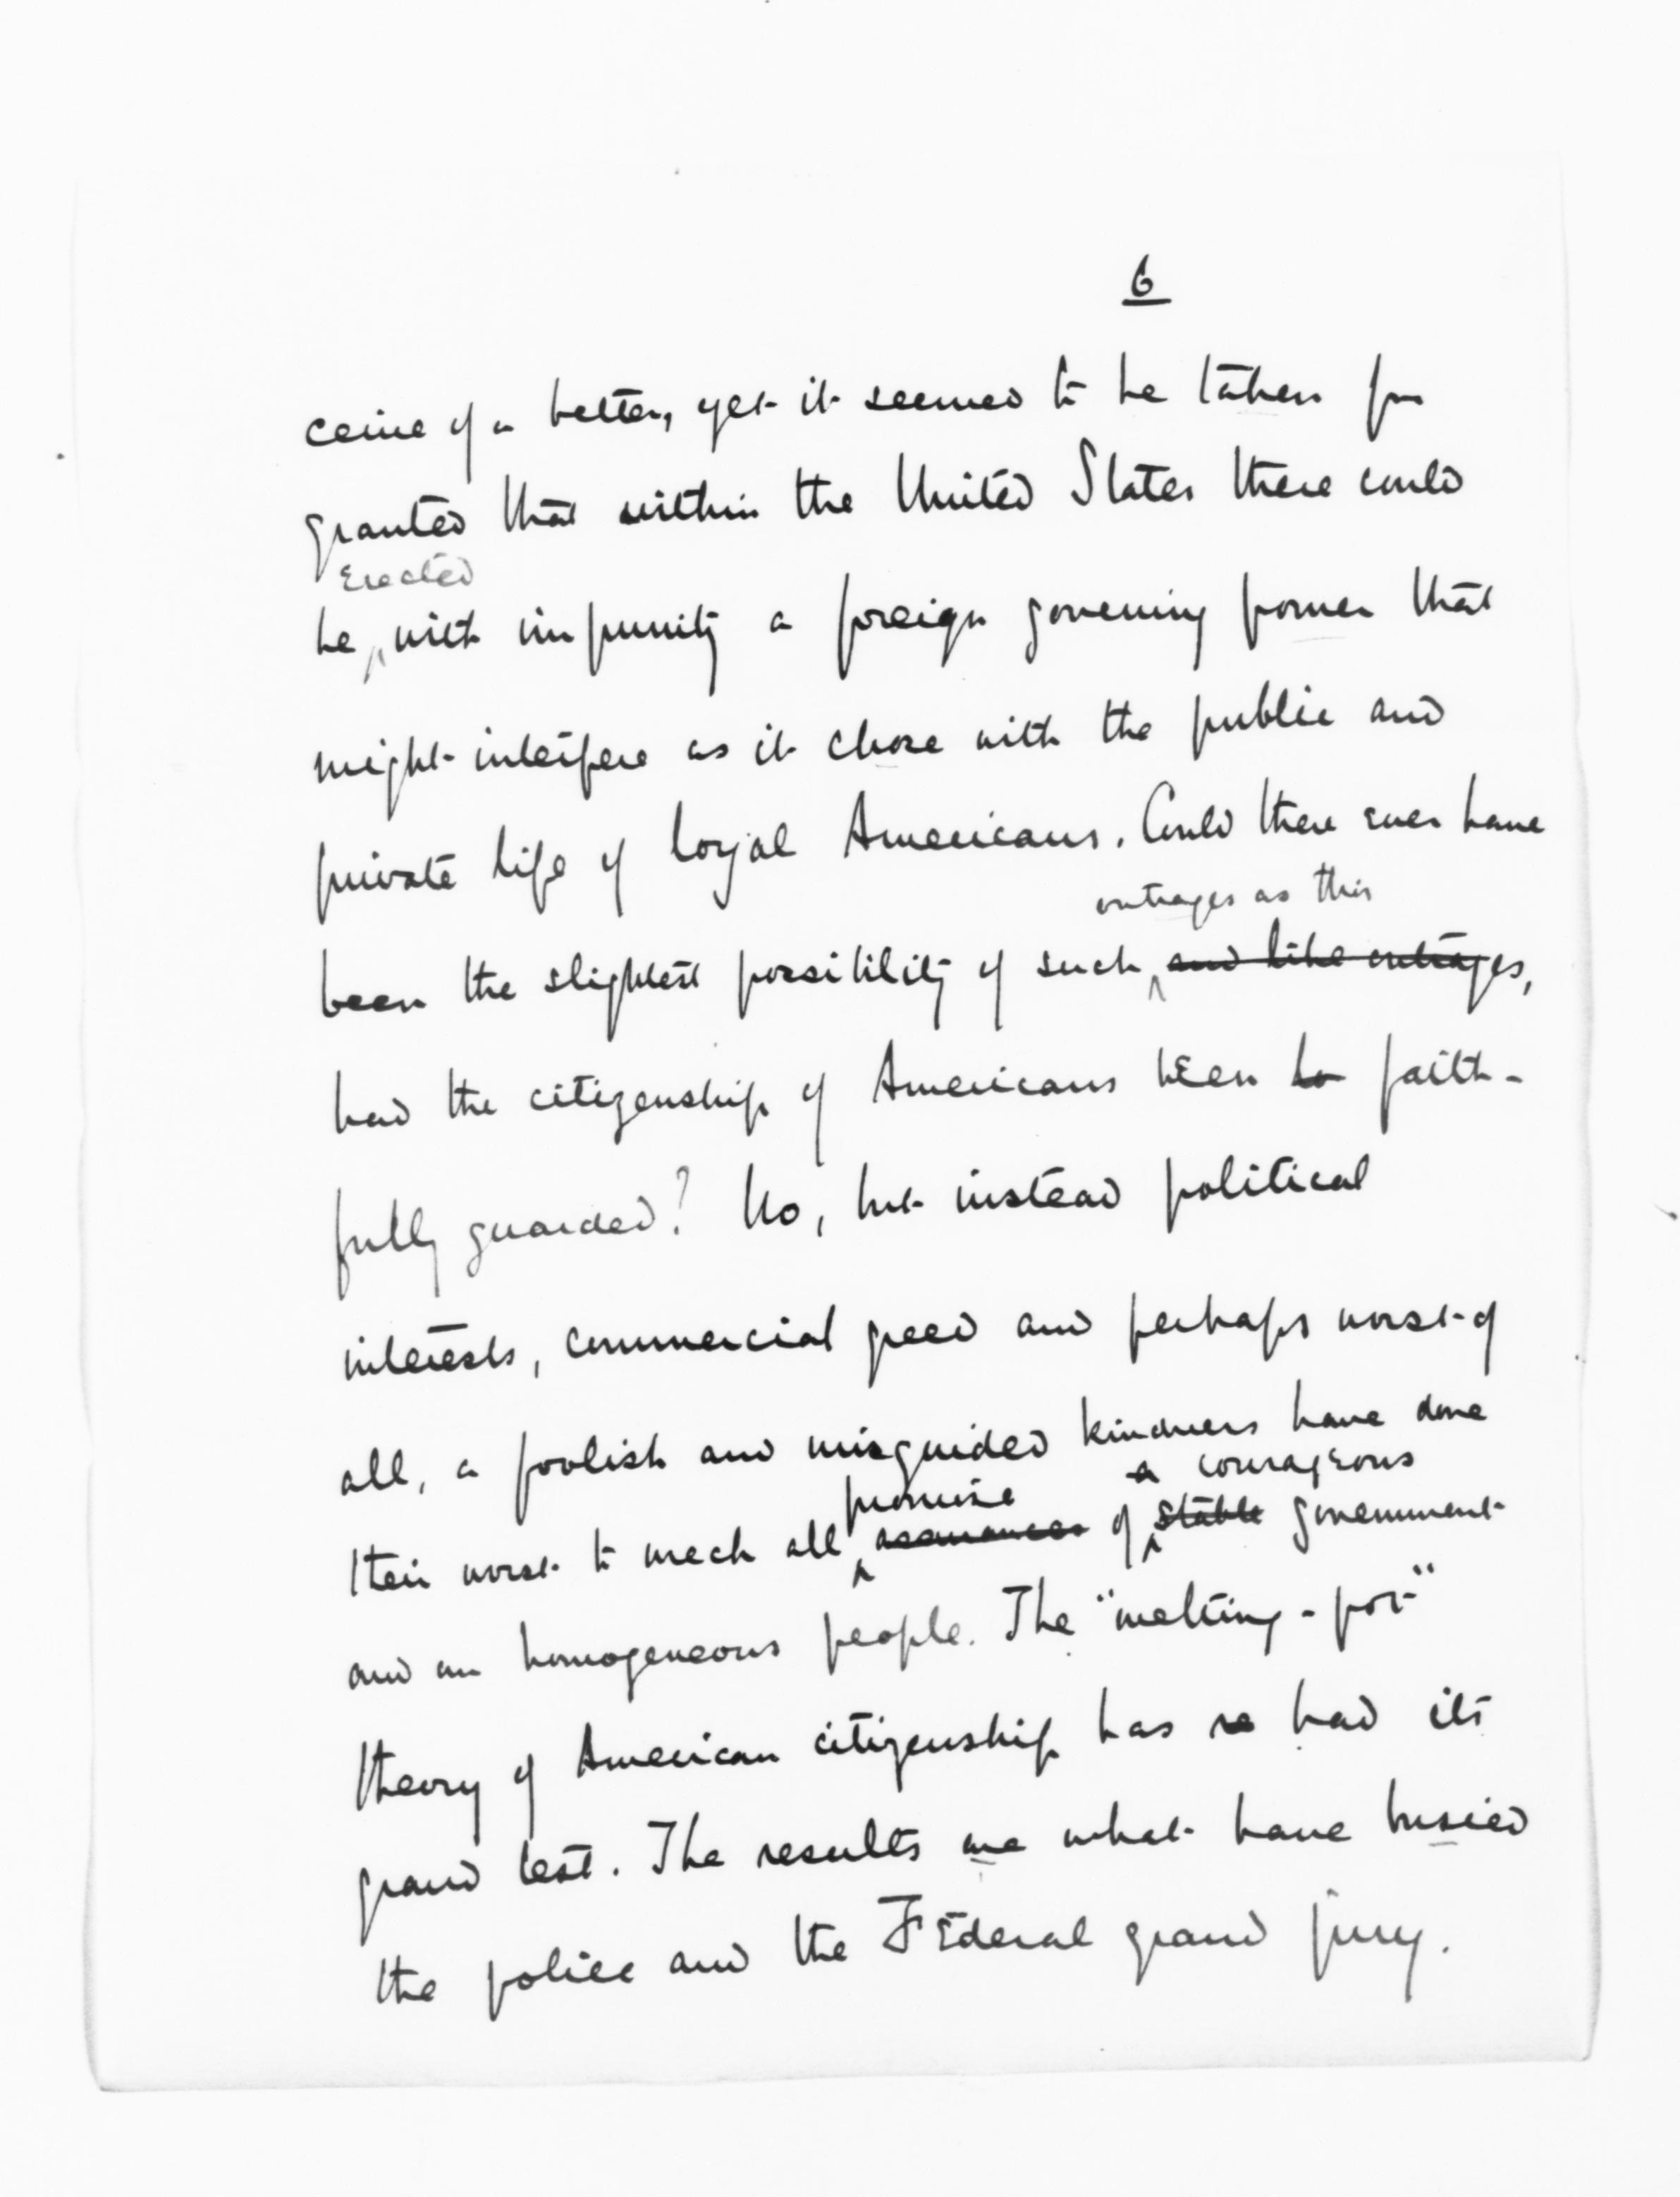 6
ceive of a better, yet it seemed to be taken for
granted that within the United States there could
erected
be with impunity a foreign governing power that
might interfere as it chose with the public and
private life of loyal Americans. Could there ever have
outrages as this
been the slightest possibility of such and like outrages,
had the citizenship of Americans been so faith-
fully guarded? No, but instead political
interests, commercial greed and perhaps worst of
all, a foolish and misguided kindness have done
promise a courageous
their worst to wreck all assurances of stable government
and an homogeneous people. The "melting-pot"
theory of American citizenship has so had its
grand test. The results are what have busied
the police and the Federal grand jury.